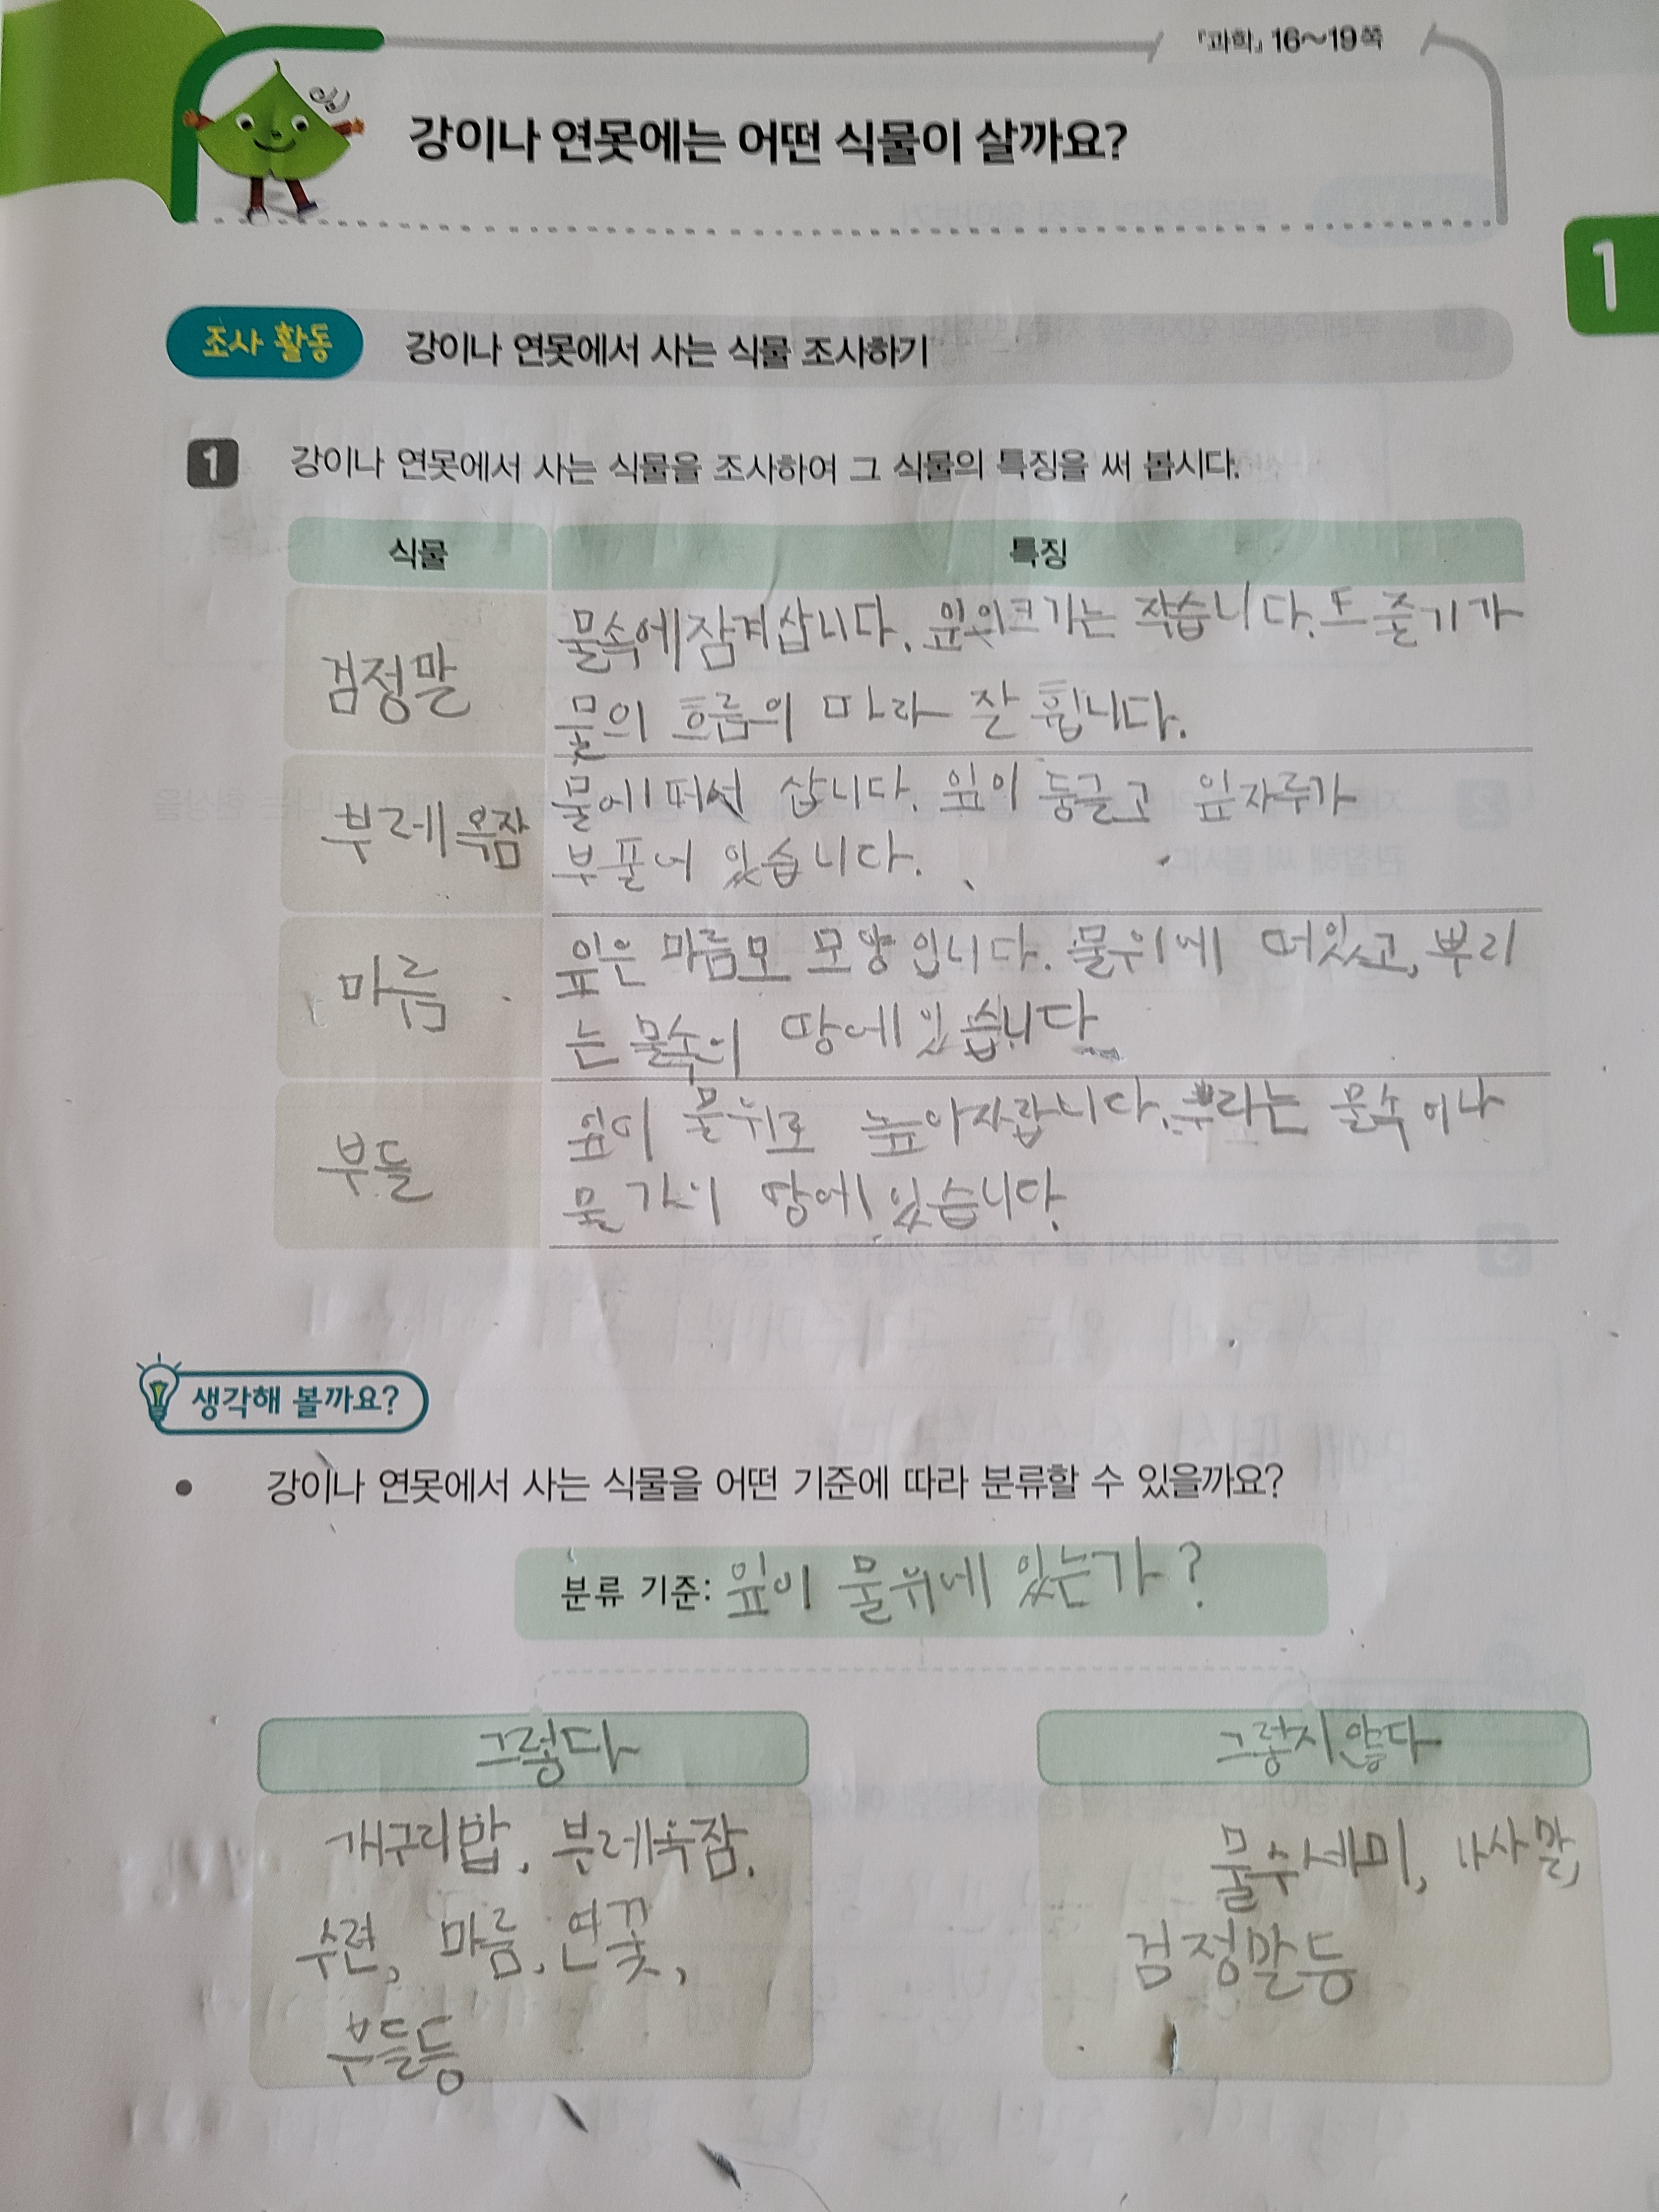 『과학』 16~19쪽
강이나 연못에는 어떤 식물이 살까요?
1
조사 활동 강이나 연못에서 사는 식물 조사하기
1 강이나 연못에서 사는 식물을 조사하여 그 식물의 특징을 써 봅시다.
식물 특징
검정말
물속에잠겨삽니다. 잎의크기는 작습니다. 또 줄기가
물의 흐름의 따라 잘 휩니다.
부레옥잠
물에 떠서 삽니다. 잎이 둥글고 잎자루가
부풀어 있습니다.
마름
잎은 마름모 모양입니다. 물위에 떠있고, 뿌리
는 물속의 땅에있습니다
부들
잎이 물위로 높이자랍니다. 물속이나
물가의 땅에 있습니다.
생각해 볼까요?
• 강이나 연못에서 사는 식물을 어떤 기준에 따라 분류할 수 있을까요?
분류 기준: 잎이 물위에 있는가?
그렇다 그렇지않다
개구리밥, 부레옥잠,
수련, 마름, 연꽃,
부들등
물수세미, 나사말,
검정말등